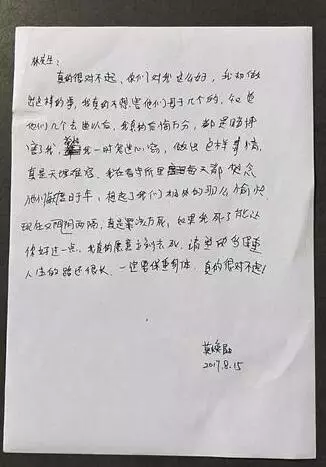 林先生：
真的很对不起，你们对我这么好，我却做
出这样的事，我真的不想害他们母子几个的，知道
他们几个去世以后，我真的后悔万分，都是赌博
害了我，我一时鬼迷心窍，做出这样事情，
真是天理难容，我在看守所里每天都 念
他们 日子，想起了我们相处的那么愉快，
现在又阴阳两隔，真是罪该万死，如果我死了能让
你好过一点，我真的愿意立刻去死，请 保重
人生的路还很长，一定要保重身体，真的很对不起！
莫焕晶
2017.8.15